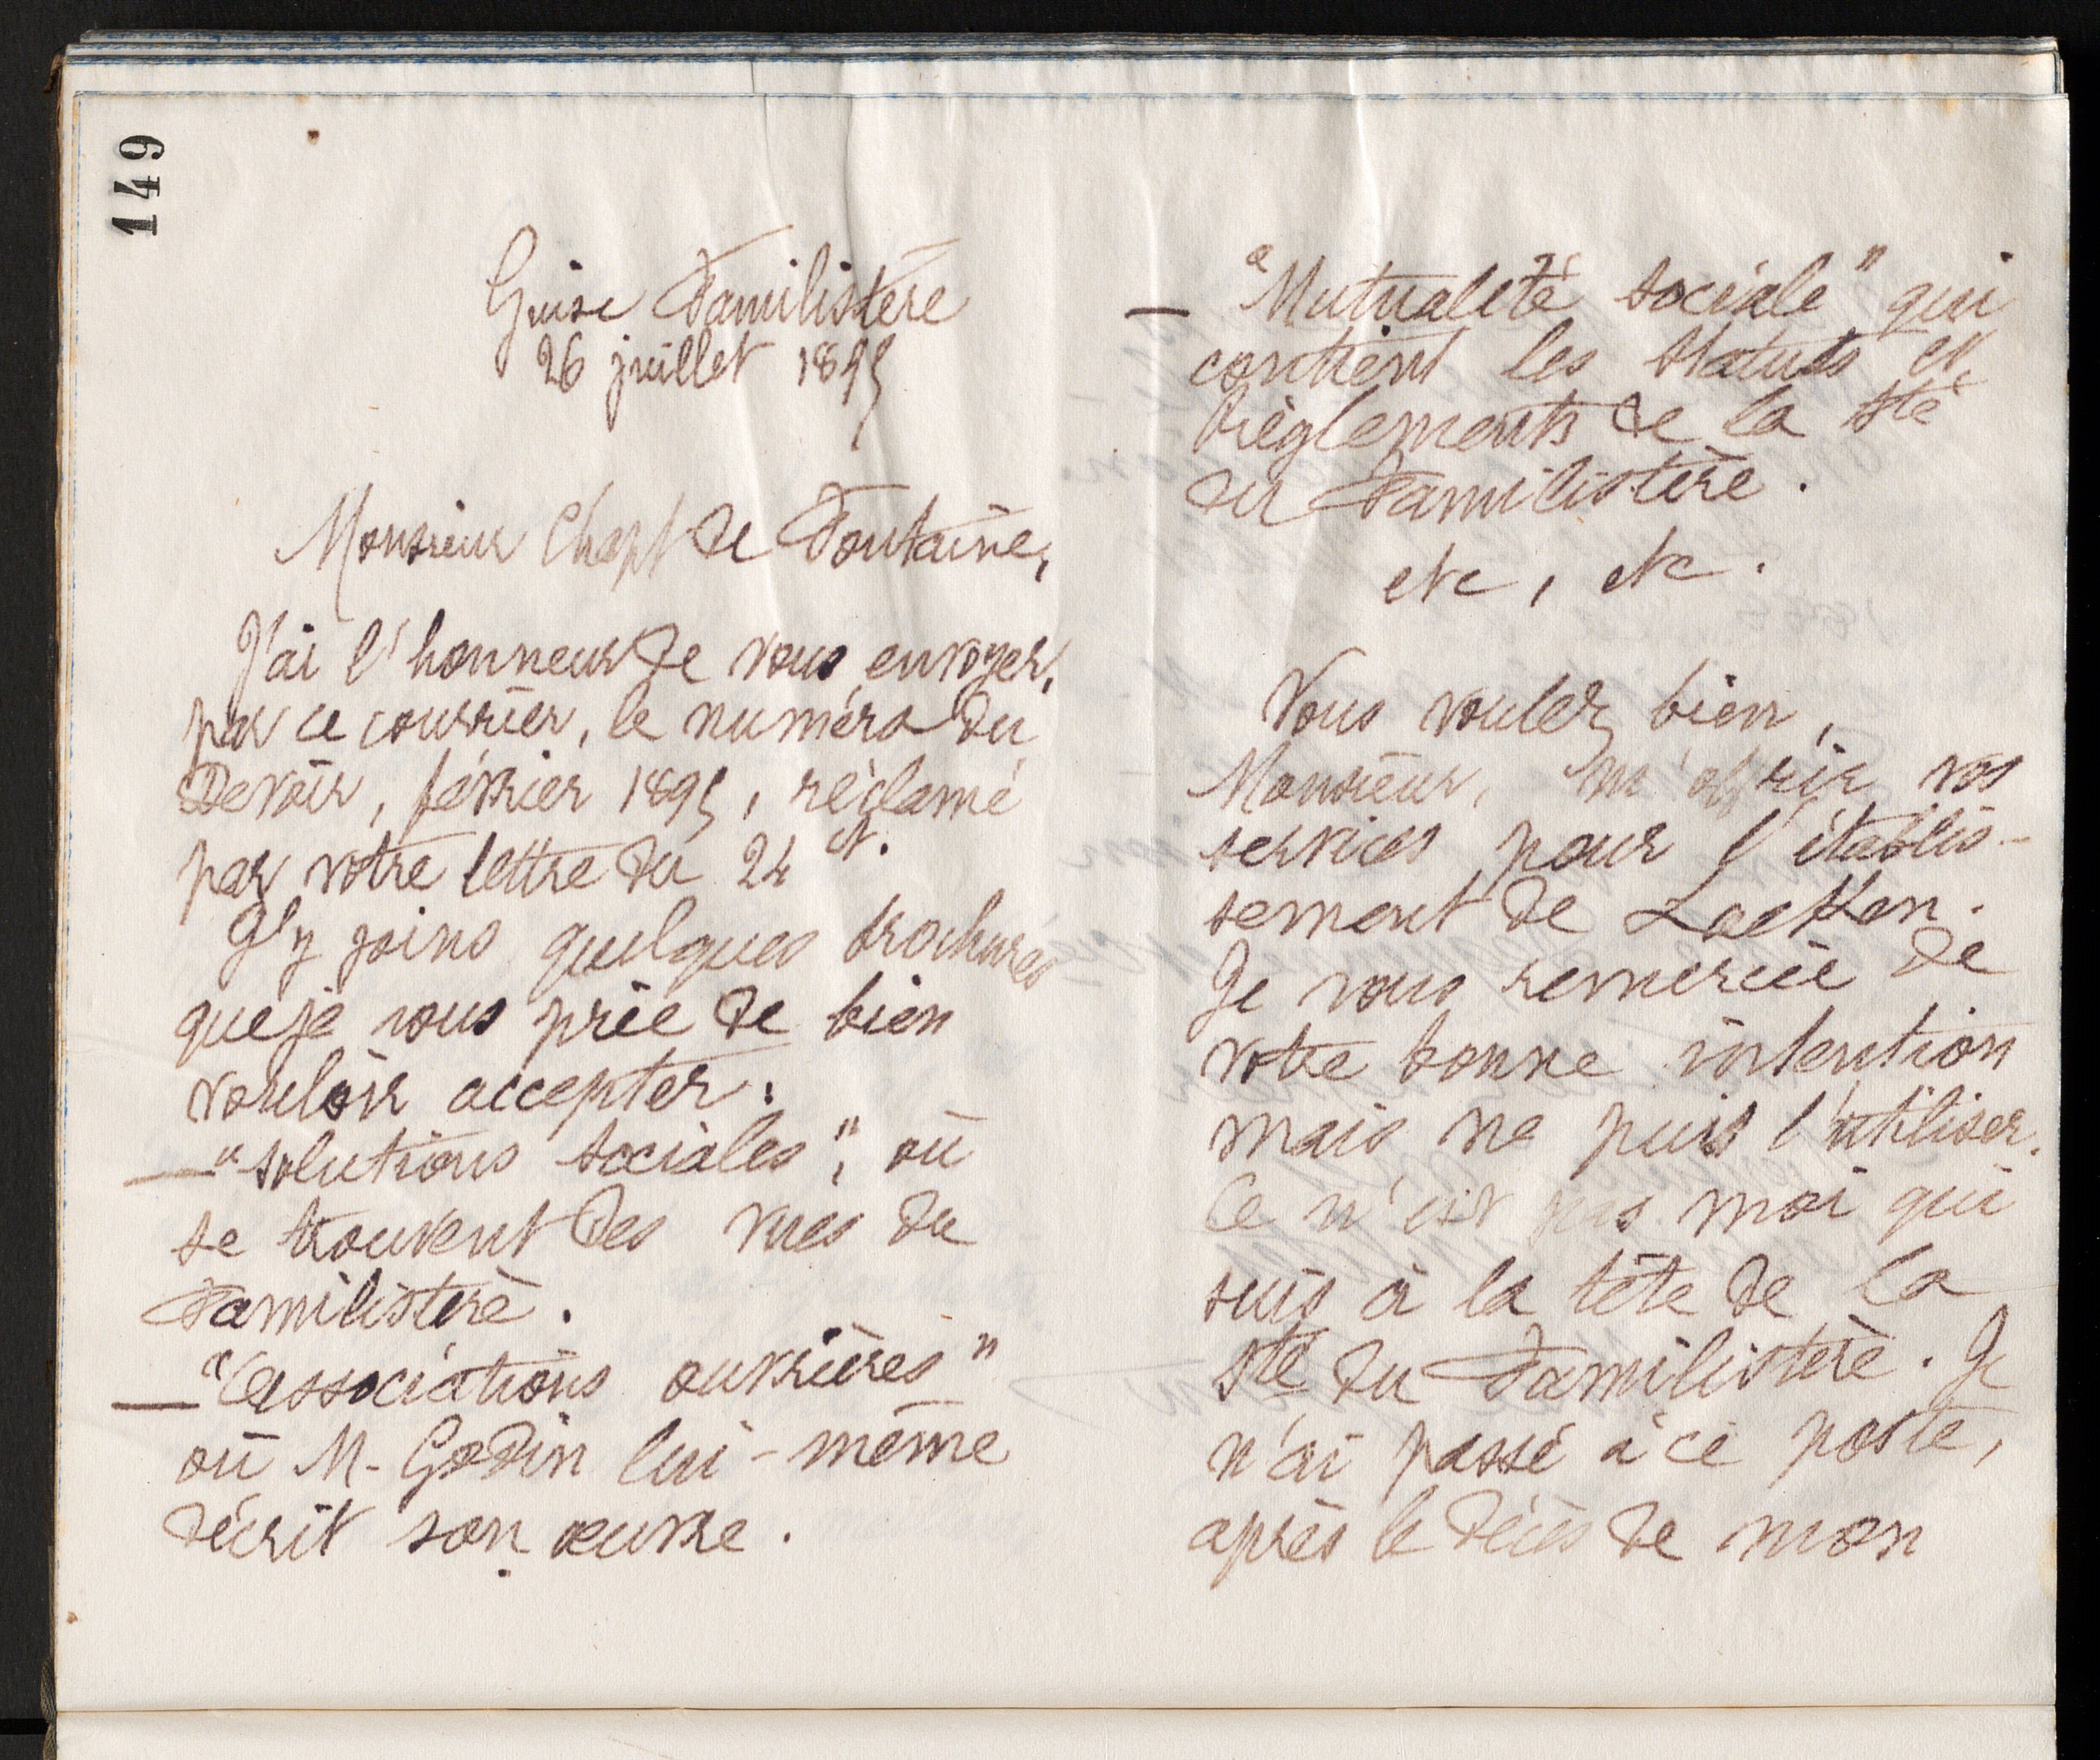 149
Guise Familistère
26 juillet 1895
Monsieur Chapt de Fontaine,
J'ai l'honneur de vous envoyer,
par ce courrier, le numéro du
Devoir, février 1895, réclamé
par votre lettre du 24 ct.
J'y joins quelques brochures
que je vous prie de bien
vouloir accepter.
— "Solutions sociales", où
se trouvent des vues du
Familistère.
— "Associations ouvrières"
où M. Godin lui-même
décrit son œuvre.
— "Mutualité sociale" qui
contient les statuts et
règlements de la Sté
du Familistère.
etc, etc.
Vous voulez bien,
Monsieur, m'offrir vos
services pour l'établis-
sement de Laeken.
Je vous remercie de
votre bonne intention
mais ne puis l'utiliser.
Ce n'est pas moi qui
suis à la tête de la
Sté du Familistère. Je
n'ai passé à ce poste,
après le décès de mon